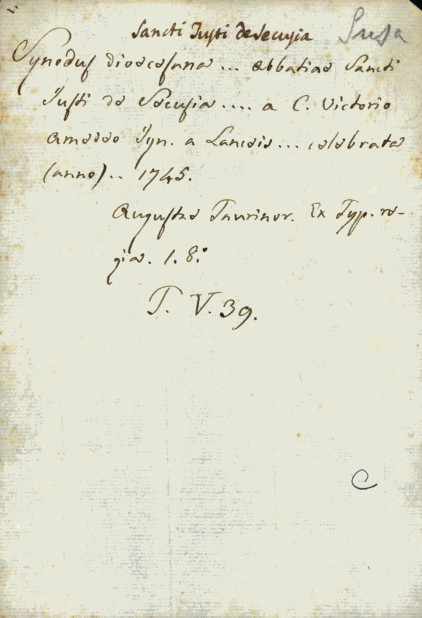 Sancti Justi de Secusia Susa
Synodus dioecesana ... abbatiae Sancti
Justi de Secusia .... a C. Victorio
Amedeo Ign. a Lanceis ... celebrata
(anno) .. 1745.
Augustae Taurinor. Ex Typ. re-
gia. 1. 8.°
T. V. 39.
C